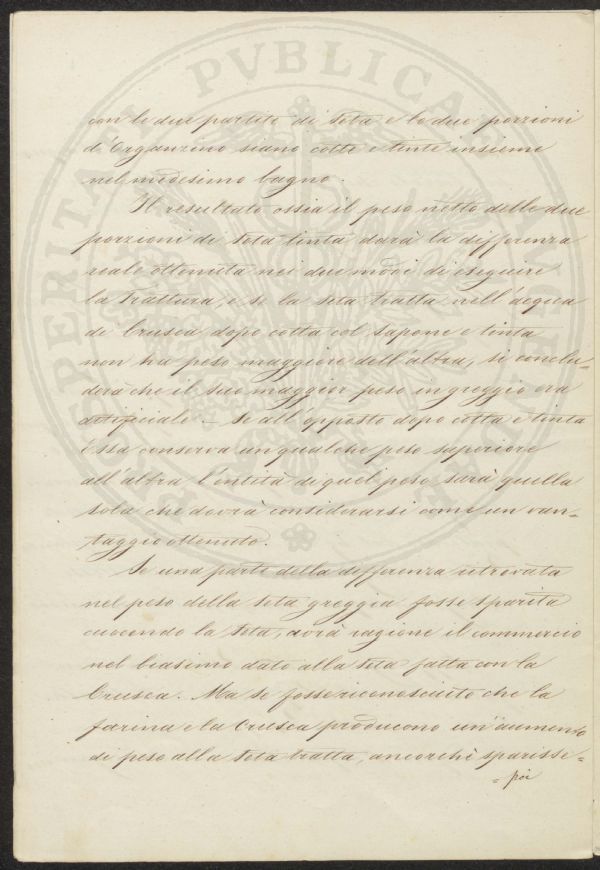 con le due partite di seta e le due porzioni
d'Organzino siano cotte e tinte insieme
nel medesimo bagno.
Il resultato ossia il peso netto delle due
porzioni di seta tinta darà la differenza
reale ottenuta nei due modi di eseguire
la Trattura, e se la seta tratta nell'acqua
di Crusca dopo cotta col sapone e tinta
non ha peso maggiore dell'altra, si conclu-
derà che il suo maggior peso in greggio era
artificiale. – Se all'opposto dopo cotta e tinta
essa conserva un qualche peso superiore
all'altra l'entità di quel peso sarà quella
sola che dovrà considerarsi come un van-
taggio ottenuto.
Se una parte della differenza ritrovata
nel peso della seta greggia fosse sparita
cuocendo la seta, avrà ragione il commercio
nel biasimo dato alla seta fatta con la
Crusca. Ma se fosse riconosciuto che la
farina e la Crusca producono un'aumento
di peso alla seta tratta, ancorchè sparisse-
= poi
PROSPERITATI PVBLICAE AVGENDAE